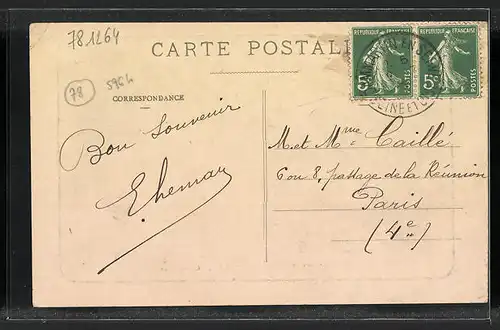 78 1264
CARTE POSTALE
RÉPUBLIQUE FRANÇAISE
5c
POSTES
RÉPUBLIQUE FRANÇAISE
5c
POSTES
SEINE ET O
78
5964
CORRESPONDANCE
Bon Souvenir
M. et Mme Caillé
6 ou 8, passage de la Réunion
Paris
(4e)